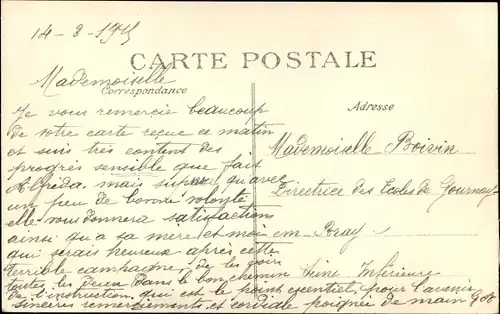 14-3-1915
CARTE POSTALE
Correspondance
Adresse
Mademoiselle
Je vous remercie beaucoup
de votre carte reçue ce matin
et suis très content des
progrès sensible que fait
mais qu'avec
un peu de bonne volonté
elle vous donnera satisfactions
ainsi qu'a sa mère et moi
qui serais heureux après cette
terrible campagne, de les voirs
toutes les deux dans le bon chemin
de l'instruction qui est le point essentiel pour l'avenir
sincères remerciements et cordiale poignée de main
Mademoiselle Boivin
Directrice des Ecoles de Gournay
em-Bray
Seine Inférieure